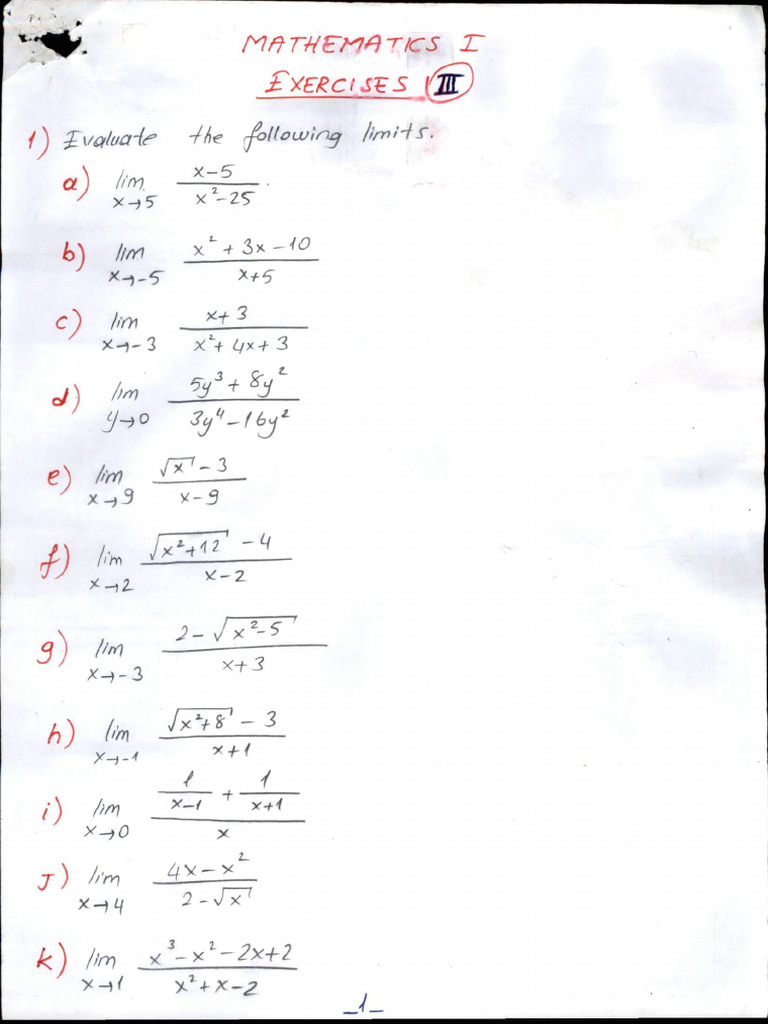 MATHEMATICS I
EXERCISES III
1) Evaluate the following limits.
a) lim x→5 (x-5)/(x²-25)
b) lim x→-5 (x²+3x-10)/(x+5)
c) lim x→-3 (x+3)/(x²+4x+3)
d) lim y→0 (5y³+8y²)/(3y⁴-16y²)
e) lim x→9 (√x-3)/(x-9)
f) lim x→2 (√(x²+12)-4)/(x-2)
g) lim x→-3 (2-√(x²-5))/(x+3)
h) lim x→-1 (√(x²+8)-3)/(x+1)
i) lim x→0 (1/(x-1)+1/(x+1))/x
J) lim x→4 (4x-x²)/(2-√x)
k) lim x→1 (x³-x²-2x+2)/(x²+x-2)
_1_